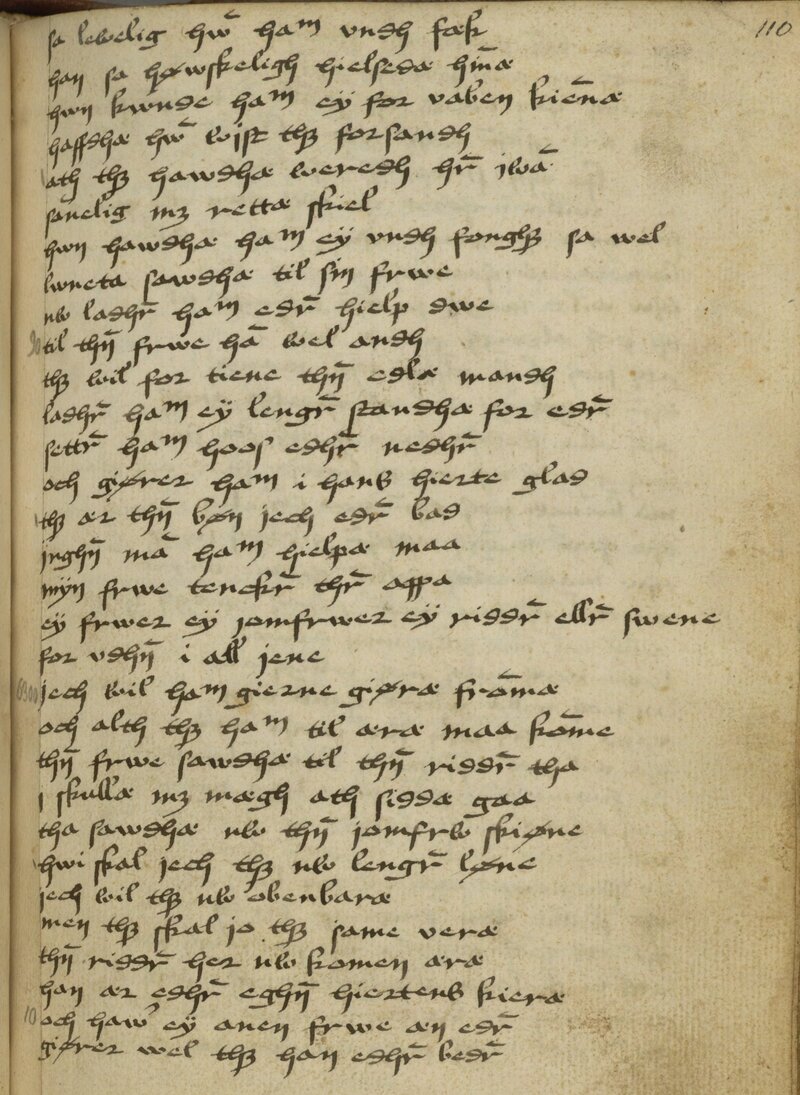 110
sa lewelig hwn̄ ham vndh fæk
han sa høwskeligh hielsedæ hm̄æ
hwn kwnde ham ey for vaben kien̄æ
haffdhæ hw̄ wist thꝫ forsandh
ath thꝫ hawdhæ weredh hr̄ iwā
sanelig mꝫ rettæ skiel
hwn hawdhæ ham ey vndh fonghꝫ sa wel
lwneta sawdhæ til sin frwe
nw ladhr̄ ham edr̄ hielp dwe
30 til thn̄ frwe hā wel andh
thꝫ wil for tiene thn̄ edlæ mandh
ladhr̄ ham ey lengr̄ standhæ for edr̄
settr̄ ham hoos edhr̄ nedhr̄
och giører ham i hans hierte glad
thꝫ ær thn̄ bøn jech edr̄ bad
inghn̄ mā ham hielpæ maa
myn frwe tenckr̄ thr̄ oppa
ey frwer ey jomfrwer ey riddr̄ ellr̄ swene
for vdhn̄ i all jene
jech wil ham gierne giøræ from̄æ
och alth thꝫ ham til æræ maa kom̄e
thn̄ frwe sawdhæ til thn̄ riddr̄ tha
j skullæ mꝫ mægh ath siddæ gaa
tha sawdhæ nw thn̄ jomfrw skiøne
hwi skal jech thꝫ nw lengr̄ løne
jech wil thꝫ nw obenbaræ
men thꝫ skal jo thꝫ same veræ
thn̄ riddr̄ her nw komen æræ
han ær edhr̄ eghn̄ hiertens kieræ
10 och haw̉ ey anen frwe æn edr̄
giører wel thꝫ han edhr̄ bedr̄